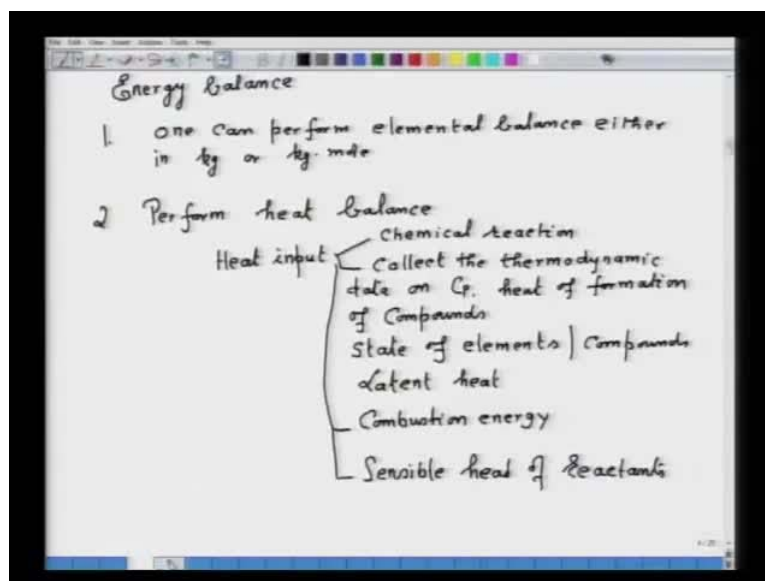 Energy balance
1. One can perform elemental balance either
in kg or kg. mole
2 Perform heat balance
Heat input
Chemical reaction
Collect the thermodynamic
data on Cp. heat of formation
of Compounds
State of elements | Compounds
Latent heat
Combustion energy
Sensible heat of Reactants